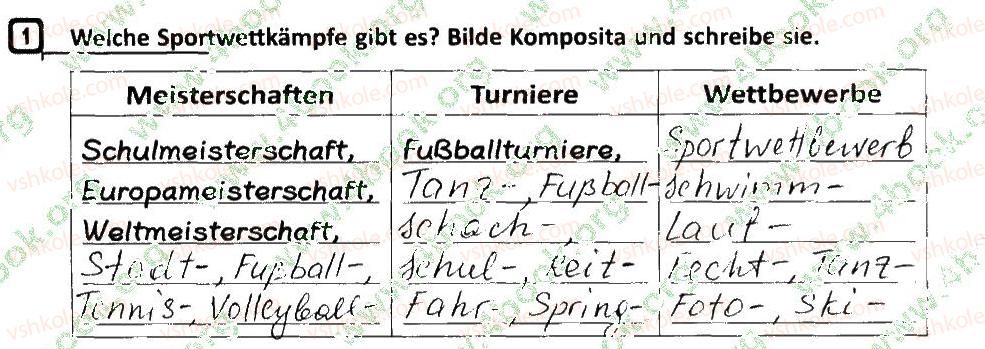 1 Welche Sportwettkämpfe gibt es? Bilde Komposita und schreibe sie.
Meisterschaften Turniere Wettbewerbe
Schulmeisterschaft, Fußballturniere, Sportwettbewerb
Europameisterschaft, Tanz-, Fußball- schwimm-
Weltmeisterschaft, schach-, Lauf-
Stadt-, Fußball-, schul-, Reit- Fecht-, Tanz-
Tennis-, Volleyball- Fahr-, Spring- Foto-, Ski-